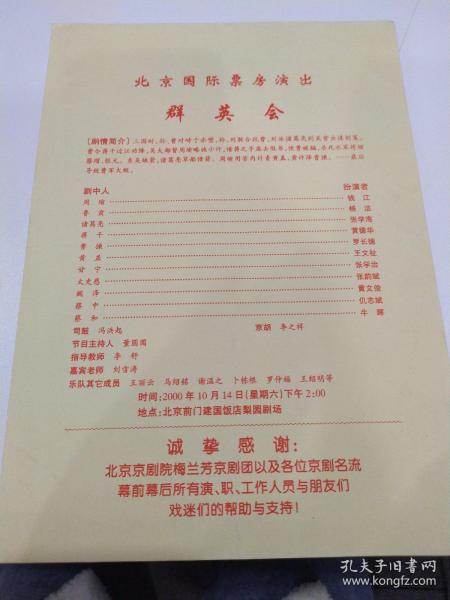 北京国际票房演出
群英会
[剧情简介] 三国时,孙、曹对峙于赤壁,孙、刘联合抗曹,刘派诸葛亮到吴营出谋划策。
曹令蒋干过江劝降,吴大都督周瑜略施小计,借蒋之手盗去假书,使曹被骗,杀死水军将领
蔡瑁、张允。东吴缺箭,诸葛亮草船借箭。周瑜用苦肉计责黄盖,黄诈降曹操。——最后
导致曹军大败。
剧中人 扮演者
周瑜 钱江
鲁肃 杨洁
诸葛亮 张学海
蒋干 黄德华
曹操 罗长德
黄盖 王文祉
甘宁 张学治
太史慈 张韵斌
阚泽 黄文俊
蔡中 仉志斌
蔡和 牛晖
司鼓 冯洪起 京胡 李之祥
节目主持人 董圆圆
指导教师 李舒
嘉宾老师 刘雪涛
乐队其它成员 王丽云 马绍铭 谢温之 卜栋根 罗仲福 王绍明等
时间:2000年10月14日(星期六)下午2:00
地点:北京前门建国饭店梨园剧场
诚挚感谢:
北京京剧院梅兰芳京剧团以及各位京剧名流
幕前幕后所有演、职、工作人员与朋友们
戏迷们的帮助与支持!
孔夫子旧书网
www.kongfz.com